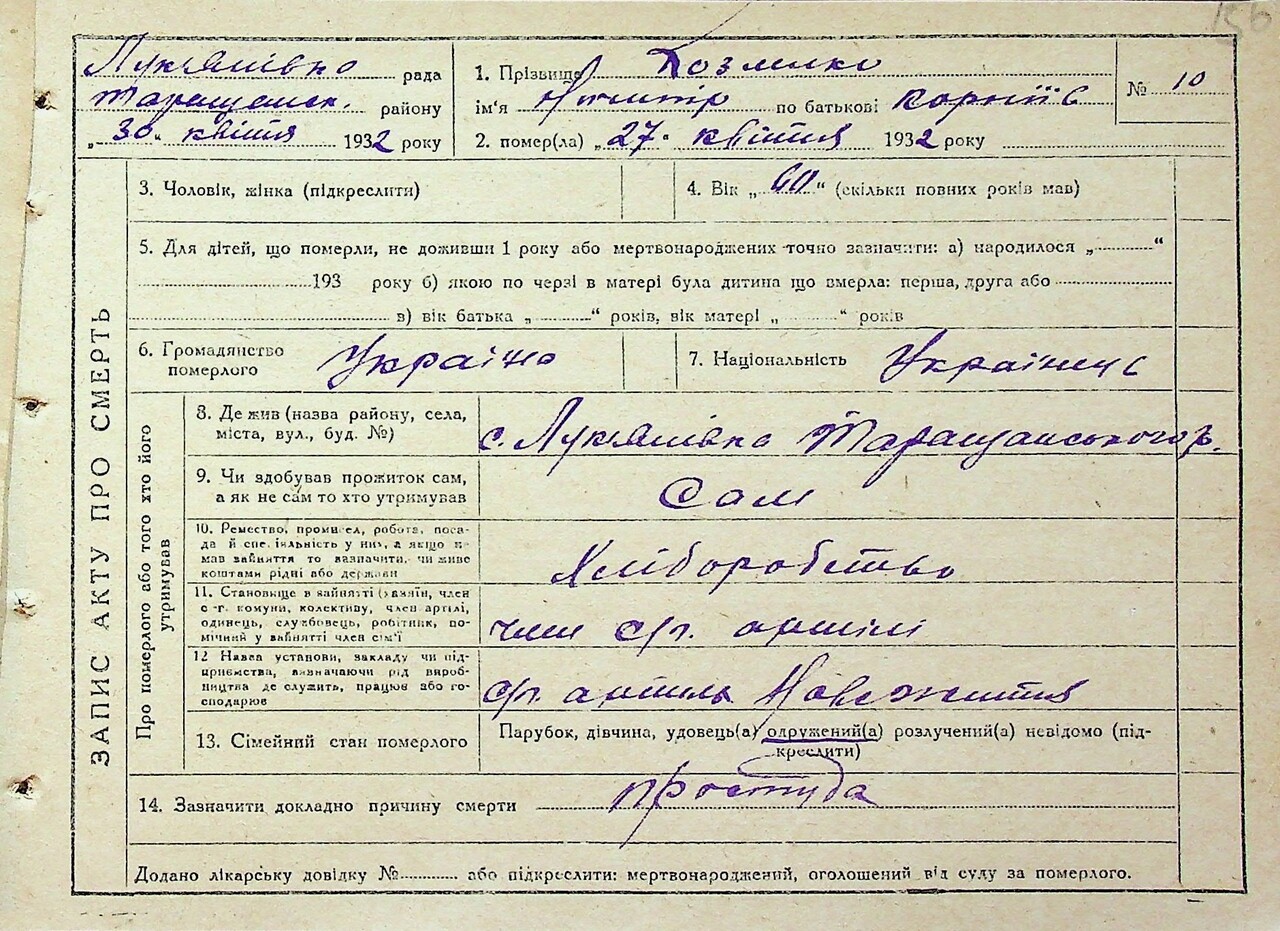 156
Лукянівка рада
Таращанск. району
„30“ квітня 1932 року
1. Прізвище Козленко
ім'я Ничипір по батькові Корнїїв
2. помер(ла) „27“ квітня 1932 року
№ 10
ЗАПИС АКТУ ПРО СМЕРТЬ
3. Чоловік, жінка (підкреслити)
4. Вік „60“ (скільки повних років мав)
5. Для дітей, що померли, не доживши 1 року або мертвонароджених точно зазначити: а) народилося „ “
193 року б) якою по черзі в матері була дитина що вмерла: перша, друга або
в) вік батька „ “ років, вік матері „ “ років
6. Громадянство
померлого Україна
7. Національність Українец
Про померлого або того хто його
утримував
8. Де жив (назва району, села,
міста, вул., буд. №) с. Лукянівка Таращанського р.
9. Чи здобував прожиток сам,
а як не сам то хто утримував Сам
10. Ремество, промисел, робота, поса-
да й спеціяльність у них, а якщо не
мав зайняття то зазначити, чи живе
коштами рідні або держави Хліборобство
11. Становище в зайнятті (хазяїн, член
с.-г. комуни, колективу, член артілі,
одинець, службовець, робітник, по-
мічний у зайнятті член сім'ї член с/г. артілі
12 Назва установи, закладу чи під-
приємства, визначаючи рід вироб-
ництва де служить, працює або го-
сподарює с/г. артиль Нове життя
13. Сімейний стан померлого
Парубок, дівчина, удовець(а) одружений(а) розлучений(а) невідомо (під-
креслити)
14. Зазначити докладно причину смерти простуда
Додано лікарську довідку № або підкреслити: мертвонароджений, оголошений від суду за померлого.